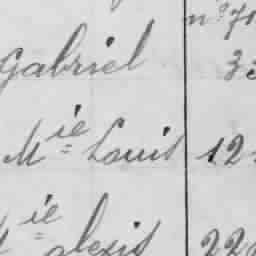 nº 71
Gabriel 33
Mie Louis 12
Mie Alexis 22